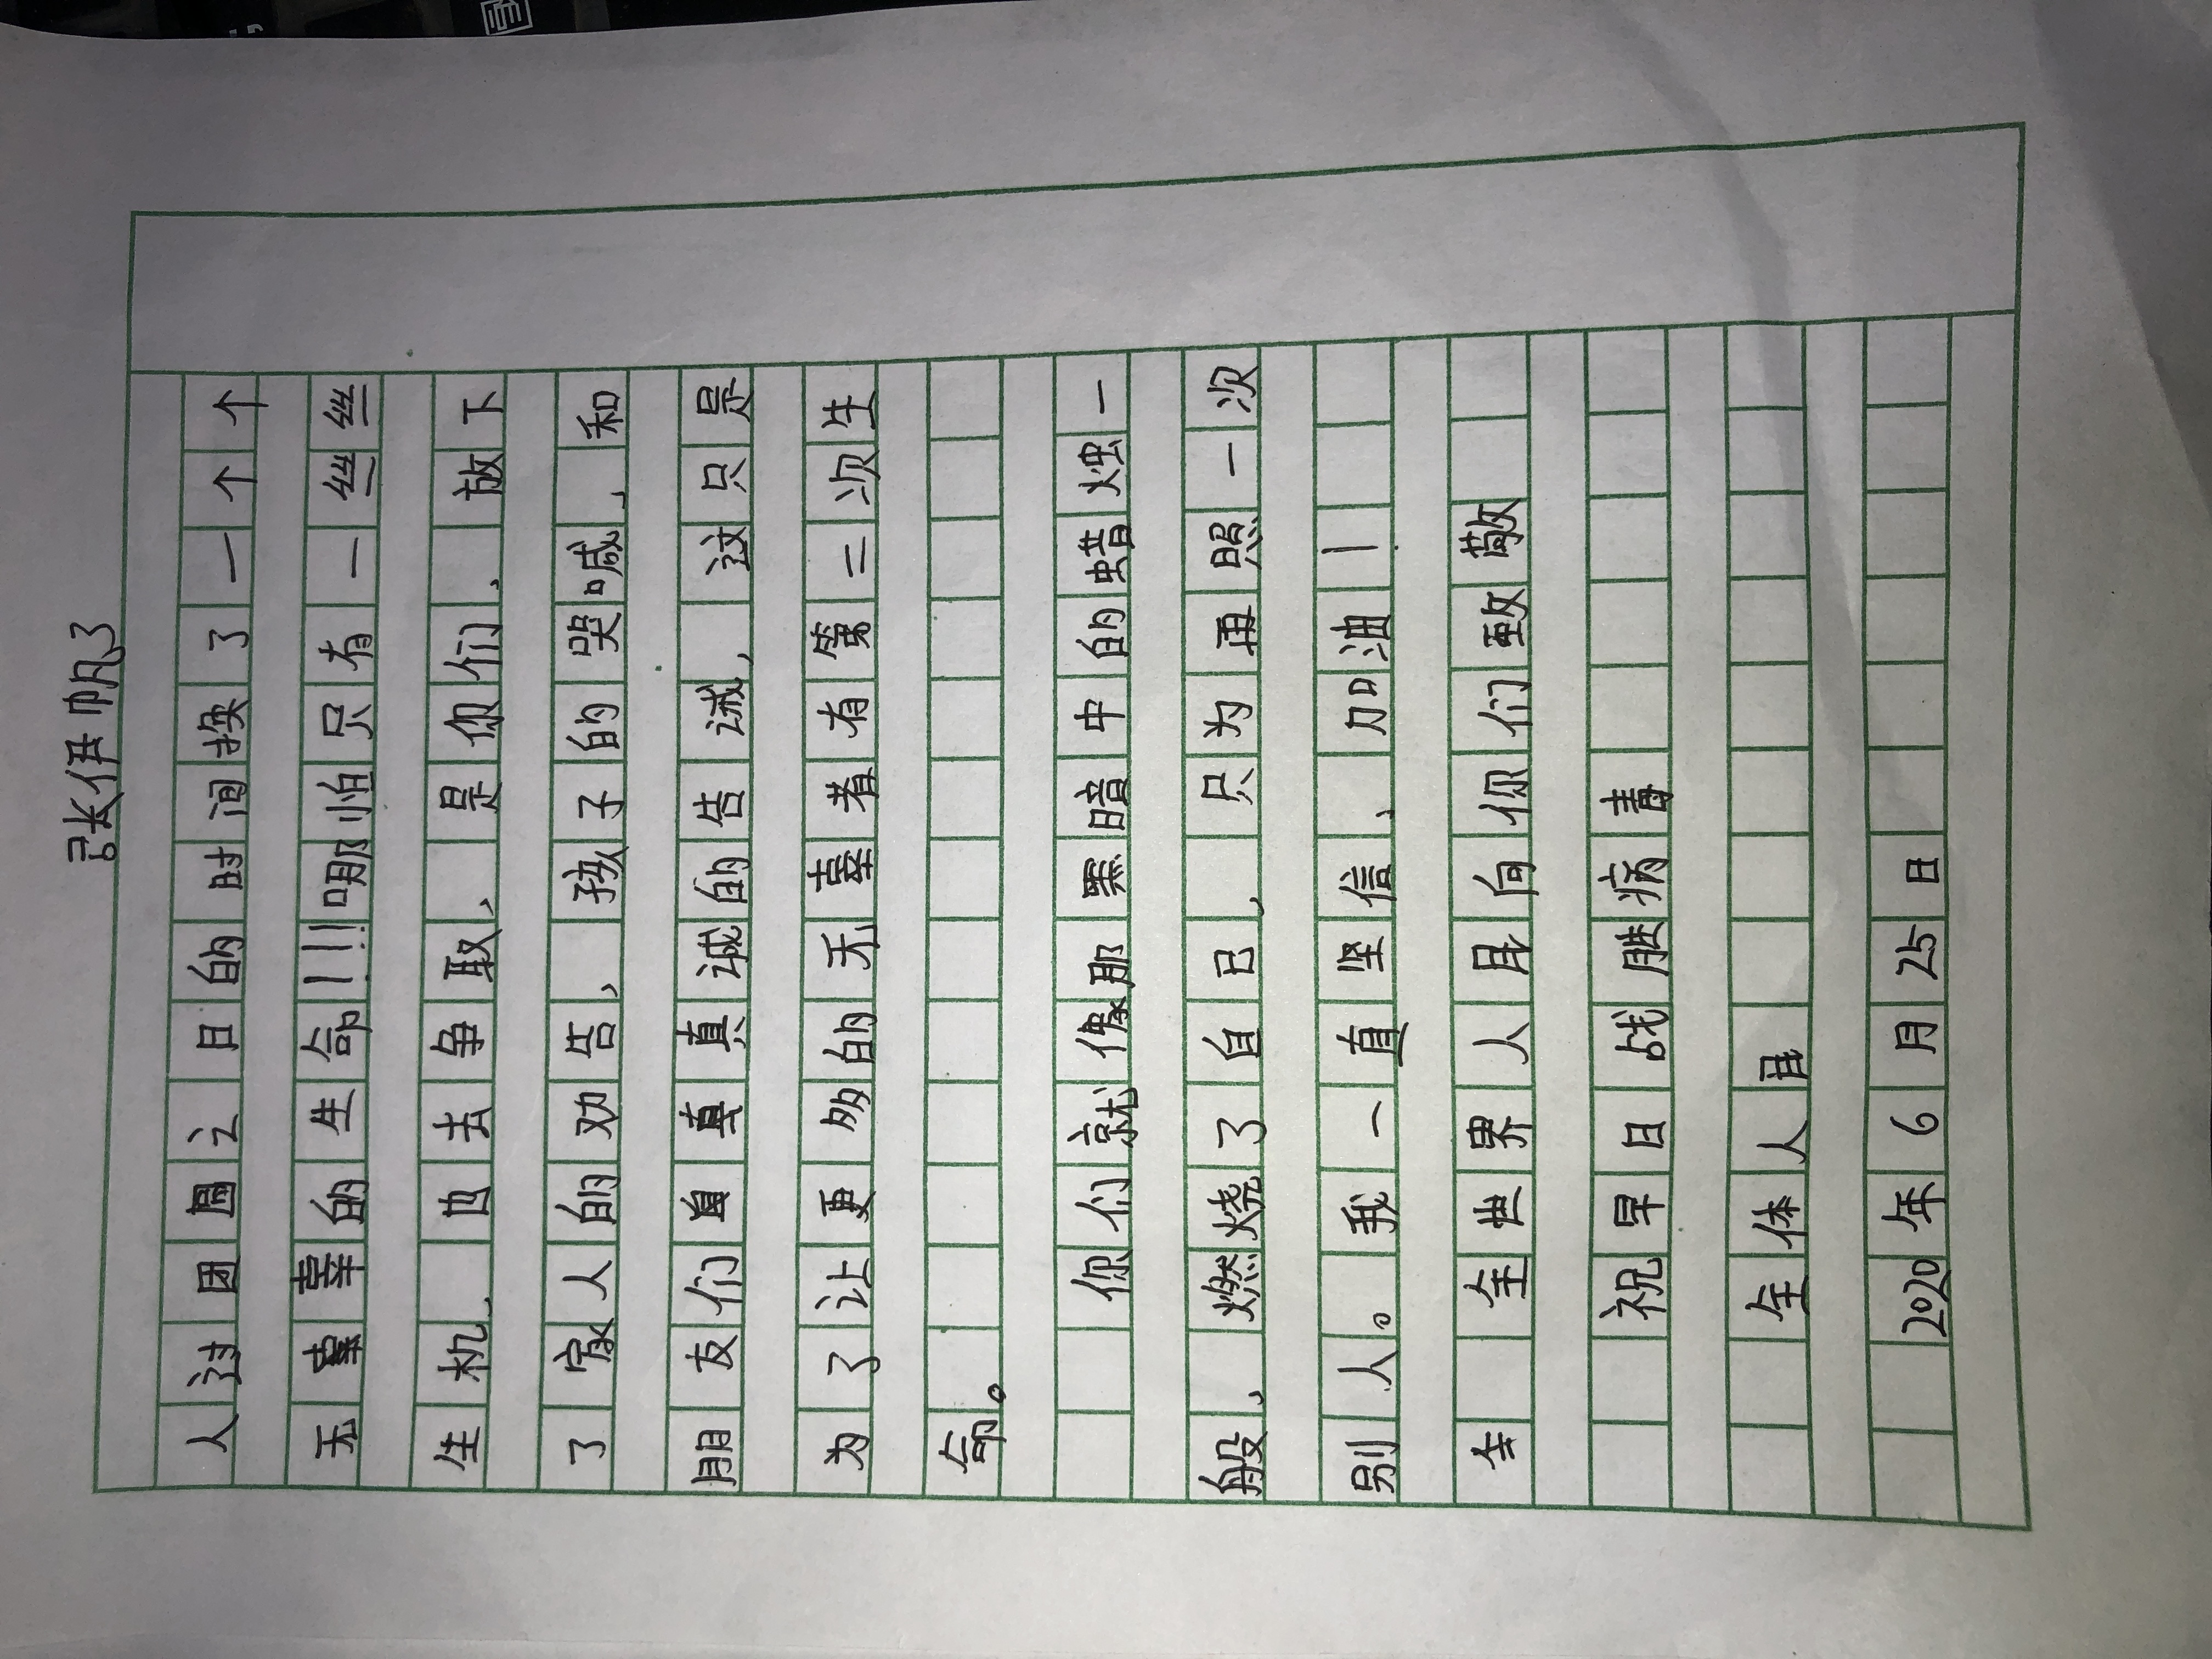 张伊帆3
人过团圆之日的时间换了一个个
无辜辜的生命!!!哪怕只有一丝丝
生机、也去争取，是你们、放下
了家人的劝告，孩子的哭喊、和
朋友们真真真诚的告诫，这只是
为了让更多的无辜者有第二次生
命。
你们就像那黑暗中的蜡烛一
般，燃烧了自己，只为再照一次
别人。我一直坚信、加油!
全 全世界人民向你们致敬
祝早日战胜病毒
全体人民
2020年6月25日